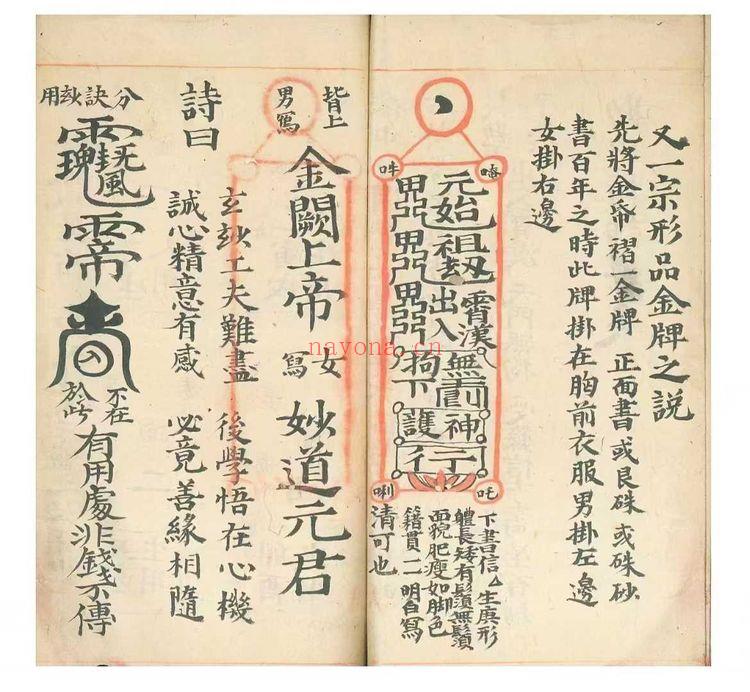 又一宗形品金牌之説
先將金帋褶一金牌 正面書或艮硃或硃砂
書百年之時此牌掛在胸前衣服男掛左邊
女掛右邊
元始祖劫
出入
霄漢
無
拘
下
護神
行
吽
唵
唎
吒
下書信人生庚形
體長矮有鬚無鬚
面貎肥瘦如脚色
籍貫一一明白寫
清可也
背上
男寫
金闕上帝
女寫
妙道元君
詩曰
玄玅工夫難盡 後學悟在心機
誠心精意有感 必竟善緣相隨
分訣玅用
不在
於此
有用處非錢不傳
nayona.cn